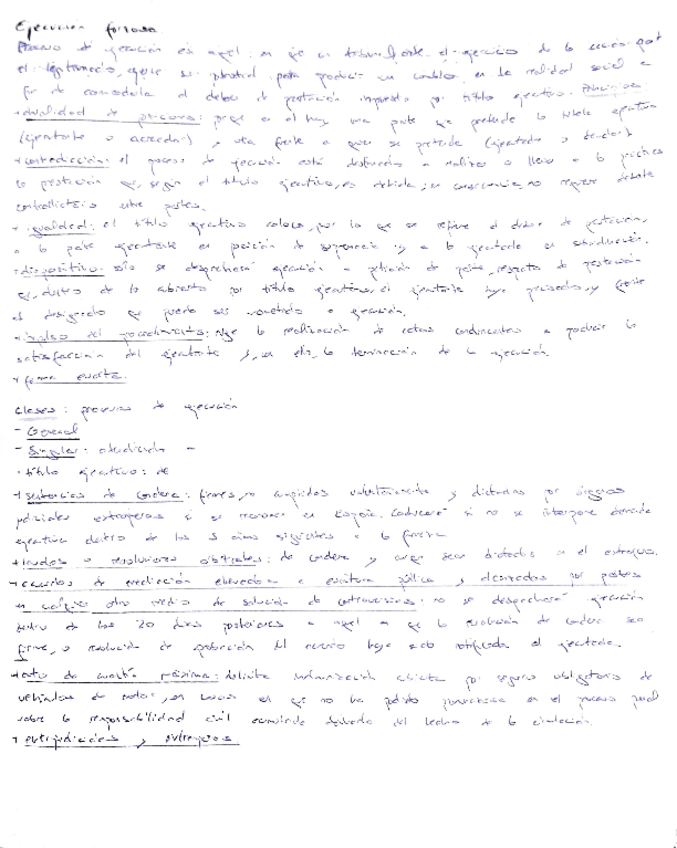 Ejecución forzosa
Proceso de ejecución es aquel en que un tribunal, ante el ejercicio de la acción por
el legitimado, ejerce su potestad para producir un cambio en la realidad social a
fin de acomodarla al deber de prestación impuesto por título ejecutivo. Principios
• dualidad de posiciones: porque en él hay una parte que pretende la tutela ejecutiva
(ejecutante o acreedor) y otra frente a quien se pretende (ejecutado o deudor)
• contradicción: el proceso de ejecución está destinado a realizar o llevar a la práctica
la prestación que, según el título ejecutivo, es debida; en consecuencia, no requiere debate
contradictorio entre partes.
• igualdad: el título ejecutivo coloca, por lo que se refiere al deber de prestación,
a la parte ejecutante en posición de supremacía y a la ejecutada en subordinación.
• dispositivo: sólo se despachará ejecución a petición de parte, respecto de prestación
que, dentro de lo abierto por título ejecutivo, el ejecutante haya precisado, y frente
al designado que puede ser sometido a ejecución.
• impulso del procedimiento: exige la realización de actos conducentes a producir la
satisfacción del ejecutante y, en ello, la terminación de la ejecución.
• forma escrita.
Clases: procesos de ejecución
- General
- Singular: atendiendo -
• título ejecutivo: de
• sentencias de condena: firmes, no cumplidas voluntariamente y dictadas por órganos
judiciales extranjeros si se reconocen en España. Caducará si no se interpone demanda
ejecutiva dentro de los 5 años siguientes a la firmeza
• laudos o resoluciones arbitrales: de condena y aunque sean dictados en el extranjero.
• acuerdos de mediación elevados a escritura pública y alcanzados por partes
en cualquier otro medio de solución de controversias: no se despachará ejecución
dentro de los 20 días posteriores a aquel en que la resolución de condena sea
firme, o resolución de aprobación del convenio haya sido notificada al ejecutado.
• auto de cuantía máxima: delimita indemnización cubierta por seguro obligatorio de
vehículos de motor, en casos en que no ha podido pronunciarse en el proceso penal
sobre la responsabilidad civil derivada del hecho de la circulación.
• extrajudiciales y extranjeros